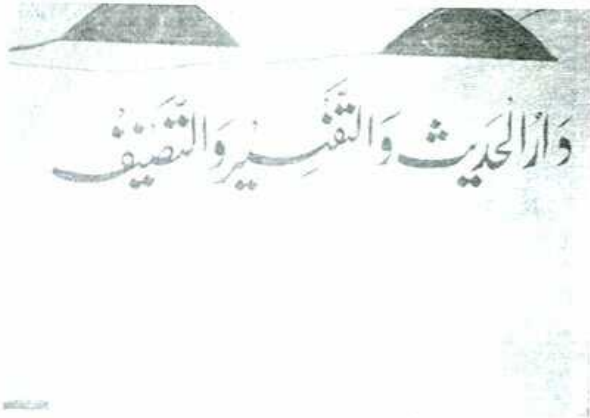 دَارُ الْحَدِيْث وَالتَّفْسِيْر وَالتَّصْنِيْفْ